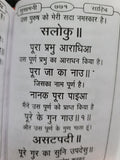 सुखमनी ७७१ साहिब
उस पुरुष को मेरी सदा नमस्कार है।
सलोकु॥
पूरा प्रभु आराधिआ
उस पूर्ण प्रभु का आराधन किया है।
पूरा जा का नाउ॥
जिसका नाम पूर्ण है
नानक पूरा पाइआ
मैंने उस पूर्ण को प्राप्त किया है
पूरे के गुन गाउ॥
उस पूर्ण के गुण गाता हूँ।
असटपदी॥
पूरे गुर का सुनि उपदेसु॥